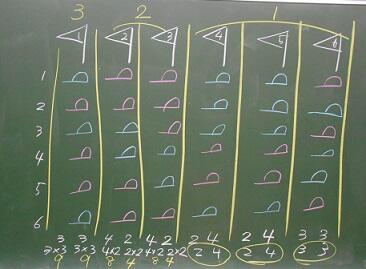 3 2 1
1 2 3 4 5 6
1 b b b b b b
2 b b b b b b
3 b b b b b b
4 b b b b b b
5 b b b b b b
6 b b b b b b
3 3 4 2 4 2 2 4 2 4 3 3
3×3 3×3 4×2 2×2 4×2 2×2 2 4 2 4 3 3
9 9 8 4 8 4